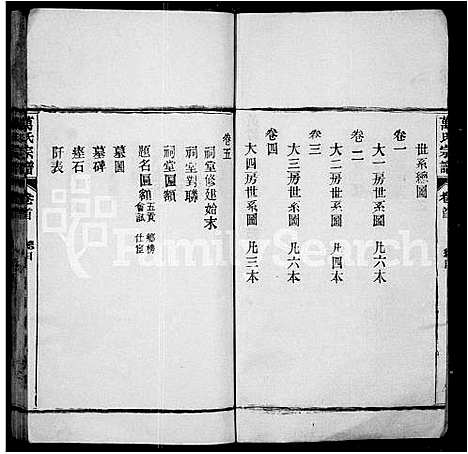 萬氏宗譜
卷首
世系總圖
卷一
大一房世系圖 凡六本
卷二
大二房世系圖 凡四本
卷三
大三房世系圖 凡六本
卷四
大四房世系圖 凡三本
卷五
祠堂修建始末
祠堂對聯
祠堂匾額
題名匾額 五貢 鄉榜 會試 仕宦
墓圖
墓碑
座石
阡表
萬氏宗譜
卷首
FamilySearch